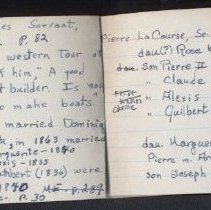 es Servant,
P. 82
western Tour of
him, A good
t builder. Is now
o make boats.
married Dominiq
, in 1863 married
guerite - 1840
exis - 1855
hbert (1836) were
1840
p. 30
Pierre LaCourse, Sr.
dau(?) Rose
dau. son Pierre II
" Claude
" Alexis
" Guilbert
dau. Marguer
Pierre m. An
son Joseph